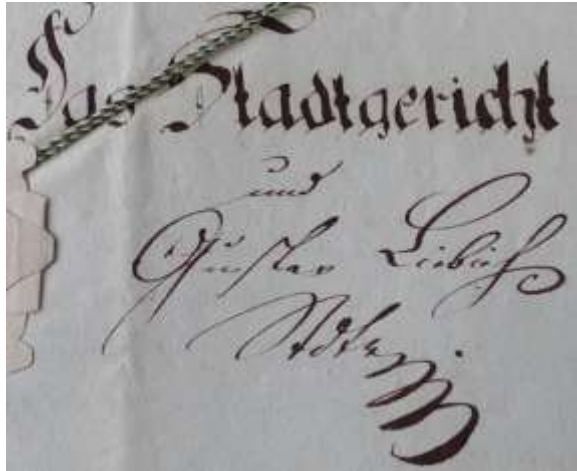 Das Stadtgericht
und
Gustav Leibich